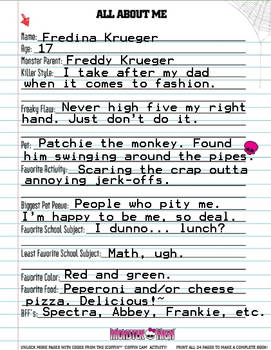 ALL ABOUT ME
Name: Fredina Krueger
Age: 17
Monster Parent: Freddy Krueger
Killer Style: I take after my dad
when it comes to fashion.
Freaky Flaw: Never high five my right
hand. Just don't do it.
Pet: Patchie the monkey. Found
him swinging around the pipes.
Favorite Activity: Scaring the crap outta
annoying jerk-offs.
Biggest Pet Peeve: People who pity me.
I'm happy to be me, so deal.
Favorite School Subject: I dunno... lunch?
Least Favorite School Subject: Math, ugh.
Favorite Color: Red and green.
Favorite Food: Peperoni and/or cheese
pizza. Delicious!~
BFF's: Spectra, Abbey, Frankie, etc.
MONSTER HIGH
UNLOCK MORE PAGES WITH CODES FROM THE
PRINT ALL 24 PAGES TO MAKE A COMPLETE BOOK!